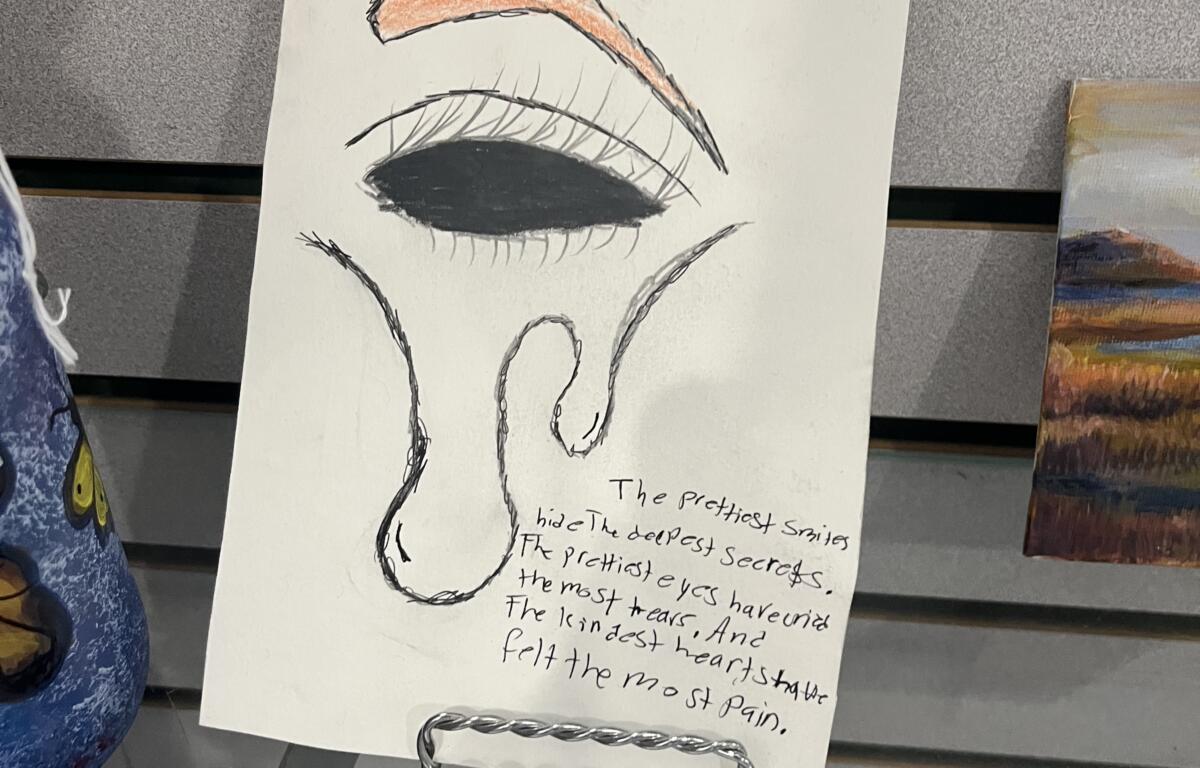 The prettiest smiles
hide The deepest secrets.
The prettiest eyes have cried
the most tears. And
The kindest hearts have
felt the most Pain.